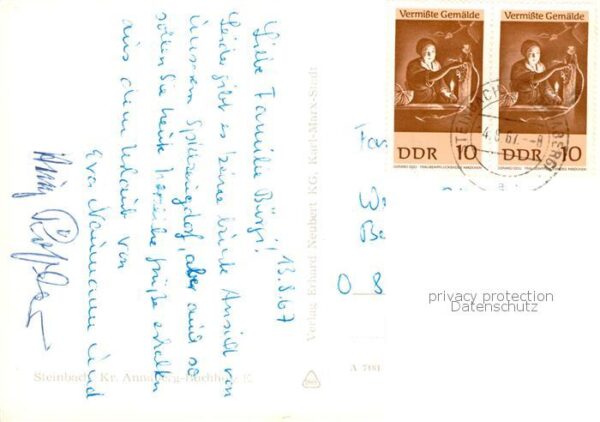 13.8.67
Liebe Familie Bürgi!
Leider gibt es keine bunte Ansicht von
unserem aber auch so
sollen Sie heute herzliche Grüße erhalten
aus dem Urlaub von
Eva Naumann und
Verlag Erhard Neubert KG, Karl-Marx-Stadt
Steinbach, Kr. Annaberg-Buchholz
A 7481
Vermißte Gemälde
DDR 10
Vermißte Gemälde
DDR 10
4.8.67
Fa
0 8
privacy protection
Datenschutz